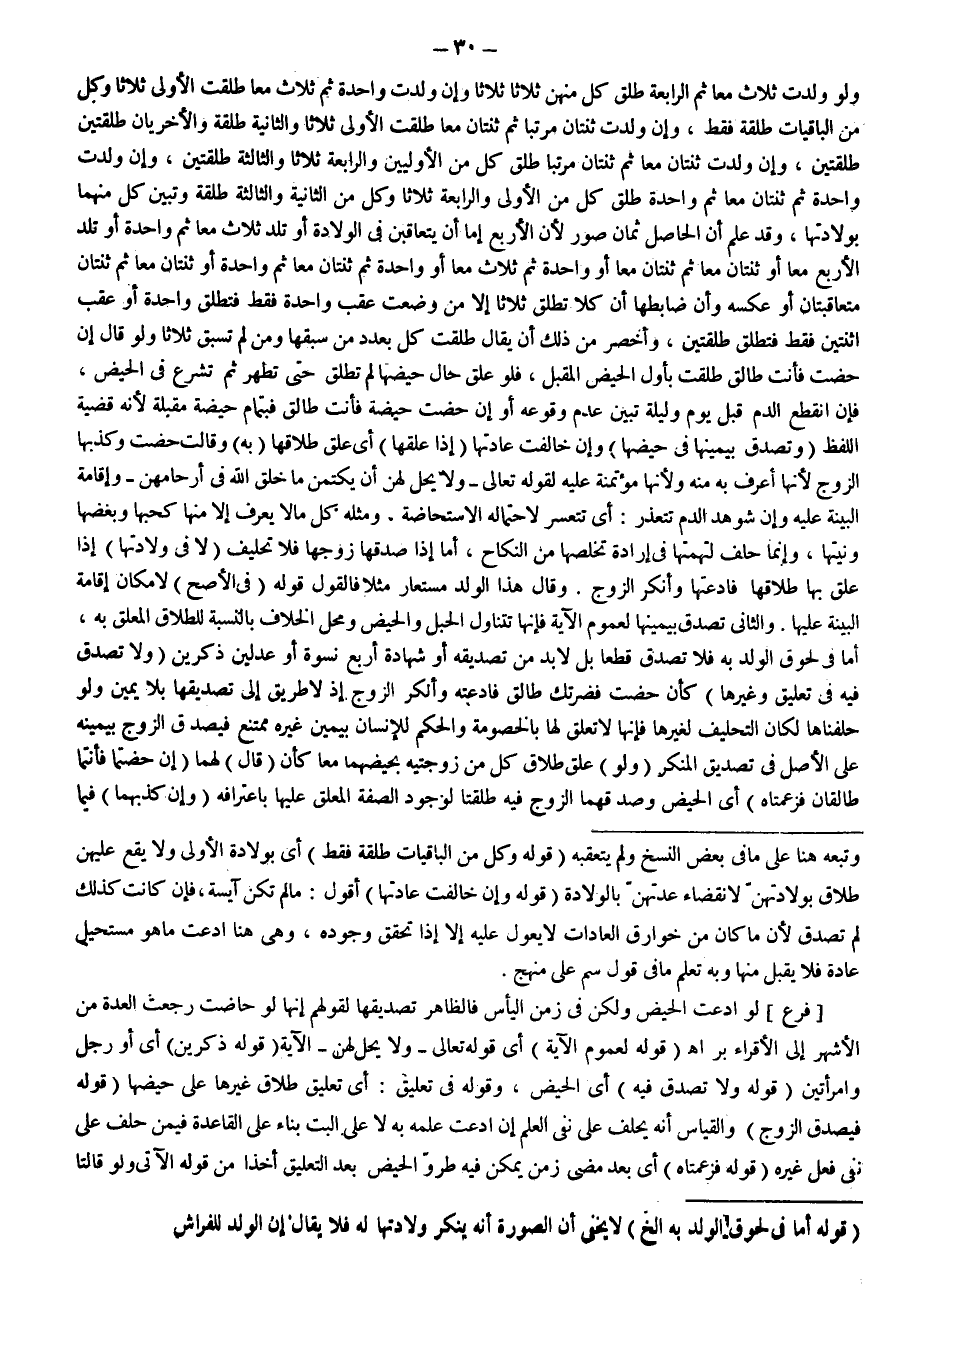 – ٣٠ –
ولو ولدت ثلاث معا ثم الرابعة طلق كل منهن ثلاثا ثلاثا وإن ولدت واحدة ثم ثلاث معا طلقت الأولى ثلاثا وكل
من الباقيات طلقة فقط ، وإن ولدت ثنتان مرتبا ثم ثنتان معا طلقت الأولى ثلاثا والثانية طلقة والأخريان طلقتين
طلقتين ، وإن ولدت ثنتان معا ثم ثنتان مرتبا طلق كل من الأوليين والرابعة ثلاثا والثالثة طلقتين ، وإن ولدت
واحدة ثم ثنتان معا ثم واحدة طلق كل من الأولى والرابعة ثلاثا وكل من الثانية والثالثة طلقة وتبين كل منهما
بولادتها ، وقد علم أن الحاصل ثمان صور لأن الأربع إما أن يتعاقبن فى الولادة أو تلد ثلاث معا ثم واحدة أو تلد
الأربع معا أو ثنتان معا ثم ثنتان معا أو واحدة ثم ثلاث معا أو واحدة ثم ثنتان معا ثم واحدة أو ثنتان معا ثم ثنتان
متعاقبتان أو عكسه وأن ضابطها أن كلا تطلق ثلاثا إلا من وضعت عقب واحدة فقط فتطلق واحدة أو عقب
اثنتين فقط فتطلق طلقتين ، وأخصر من ذلك أن يقال طلقت كل بعدد من سبقها ومن لم تسبق ثلاثا ولو قال إن
حضت فأنت طالق طلقت بأول الحيض المقبل ، فلو علق حال حيضها لم تطلق حتى تطهر ثم تشرع فى الحيض ،
فإن انقطع الدم قبل يوم وليلة تبين عدم وقوعه أو إن حضت حيضة فأنت طالق فبتمام حيضة مقبلة لأنه قضية
اللفظ ( وتصدق بيمينها فى حيضها ) وإن خالفت عادتها ( إذا علقها ) أى علق طلاقها ( به ) وقالت حضت وكذبها
الزوج لأنها أعرف به منه ولأنها مؤتمنة عليه لقوله تعالى ـ ولا يحل لهن أن يكتمن ما خلق الله فى أرحامهن ـ وإقامة
البينة عليه وإن شوهد الدم تتعذر : أى تتعسر لاحتماله الاستحاضة . ومثله كل مالا يعرف إلا منها كحبها وبغضها
ونيتها ، وإنما حلف لتهمتها فى إرادة تخلصها من النكاح ، أما إذا صدقها زوجها فلا تحليف ( لا فى ولادتها ) إذا
علق بها طلاقها فادعتها وأنكر الزوج . وقال هذا الولد مستعار مثلا فالقول قوله ( فى الأصح ) لامكان إقامة
البينة عليها . والثانى تصدق بيمينها لعموم الآية فإنها تتناول الحبل والحيض ومحل الخلاف بالنسبة للطلاق المعلق به ،
أما فى لحوق الولد به فلا تصدق قطعا بل لابد من تصديقه أو شهادة أربع نسوة أو عدلين ذكرين ( ولا تصدق
فيه فى تعليق وغيرها ) كأن حضت فضرتك طالق فادعته وأنكر الزوج إذ لاطريق إلى تصديقها بلا يمين ولو
حلفناها لكان التحليف لغيرها فإنها لاتعلق لها بالخصومة والحكم للإنسان بيمين غيره ممتنع فيصدق الزوج بيمينه
على الأصل فى تصديق المنكر ( ولو ) علق طلاق كل من زوجتيه بحيضهما معا كأن ( قال ) لهما ( إن حضتما فأنتما
طالقان فزعمتاه ) أى الحيض وصدقهما الزوج فيه طلقتا لوجود الصفة المعلق عليها باعترافه ( وإن كذبهما ) فيما
وتبعه هنا على مافى بعض النسخ ولم يتعقبه ( قوله وكل من الباقيات طلقة فقط ) أى بولادة الأولى ولا يقع عليهن
طلاق بولادتهنّ لانقضاء عدتهنّ بالولادة ( قوله وإن خالفت عادتها ) أقول : مالم تكن آيسة ، فإن كانت كذلك
لم تصدق لأن ماكان من خوارق العادات لايعول عليه إلا إذا تحقق وجوده ، وهى هنا ادعت ماهو مستحيل
عادة فلا يقبل منها وبه تعلم مافى قول سم على منهج .
[ فرع ] لو ادعت الحيض ولكن فى زمن اليأس فالظاهر تصديقها لقولهم إنها لو حاضت رجعت العدة من
الأشهر إلى الأقراء بر اه ( قوله لعموم الآية ) أى قوله تعالى ـ ولا يحل لهن ـ الآية ( قوله ذكرين ) أى أو رجل
وامرأتين ( قوله ولا تصدق فيه ) أى الحيض ، وقوله فى تعليق : أى تعليق طلاق غيرها على حيضها ( قوله
فيصدق الزوج ) والقياس أنه يحلف على نفى العلم إن ادعت علمه به لا على البت بناء على القاعدة فيمن حلف على
نفى فعل غيره ( قوله فزعمتاه ) أى بعد مضى زمن يمكن فيه طروّ الحيض بعد التعليق أخذا من قوله الآتى ولو قالتا
( قوله أما فى لحوق الولد به الخ ) لايخفى أن الصورة أنه ينكر ولادتها له فلا يقال إن الولد للفراش